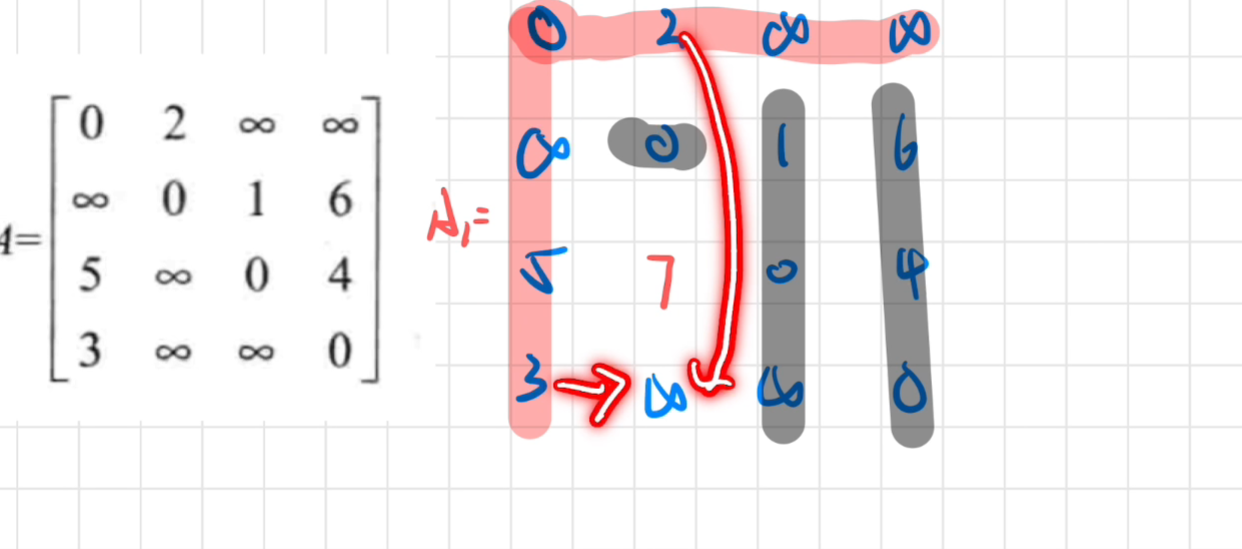 0 2 ∞ ∞
∞ 0 1 6
5 ∞ 0 4
3 ∞ ∞ 0
A₁=
0 2 ∞ ∞
∞ 0 1 6
5 7 0 4
3 ∞ ∞ 0